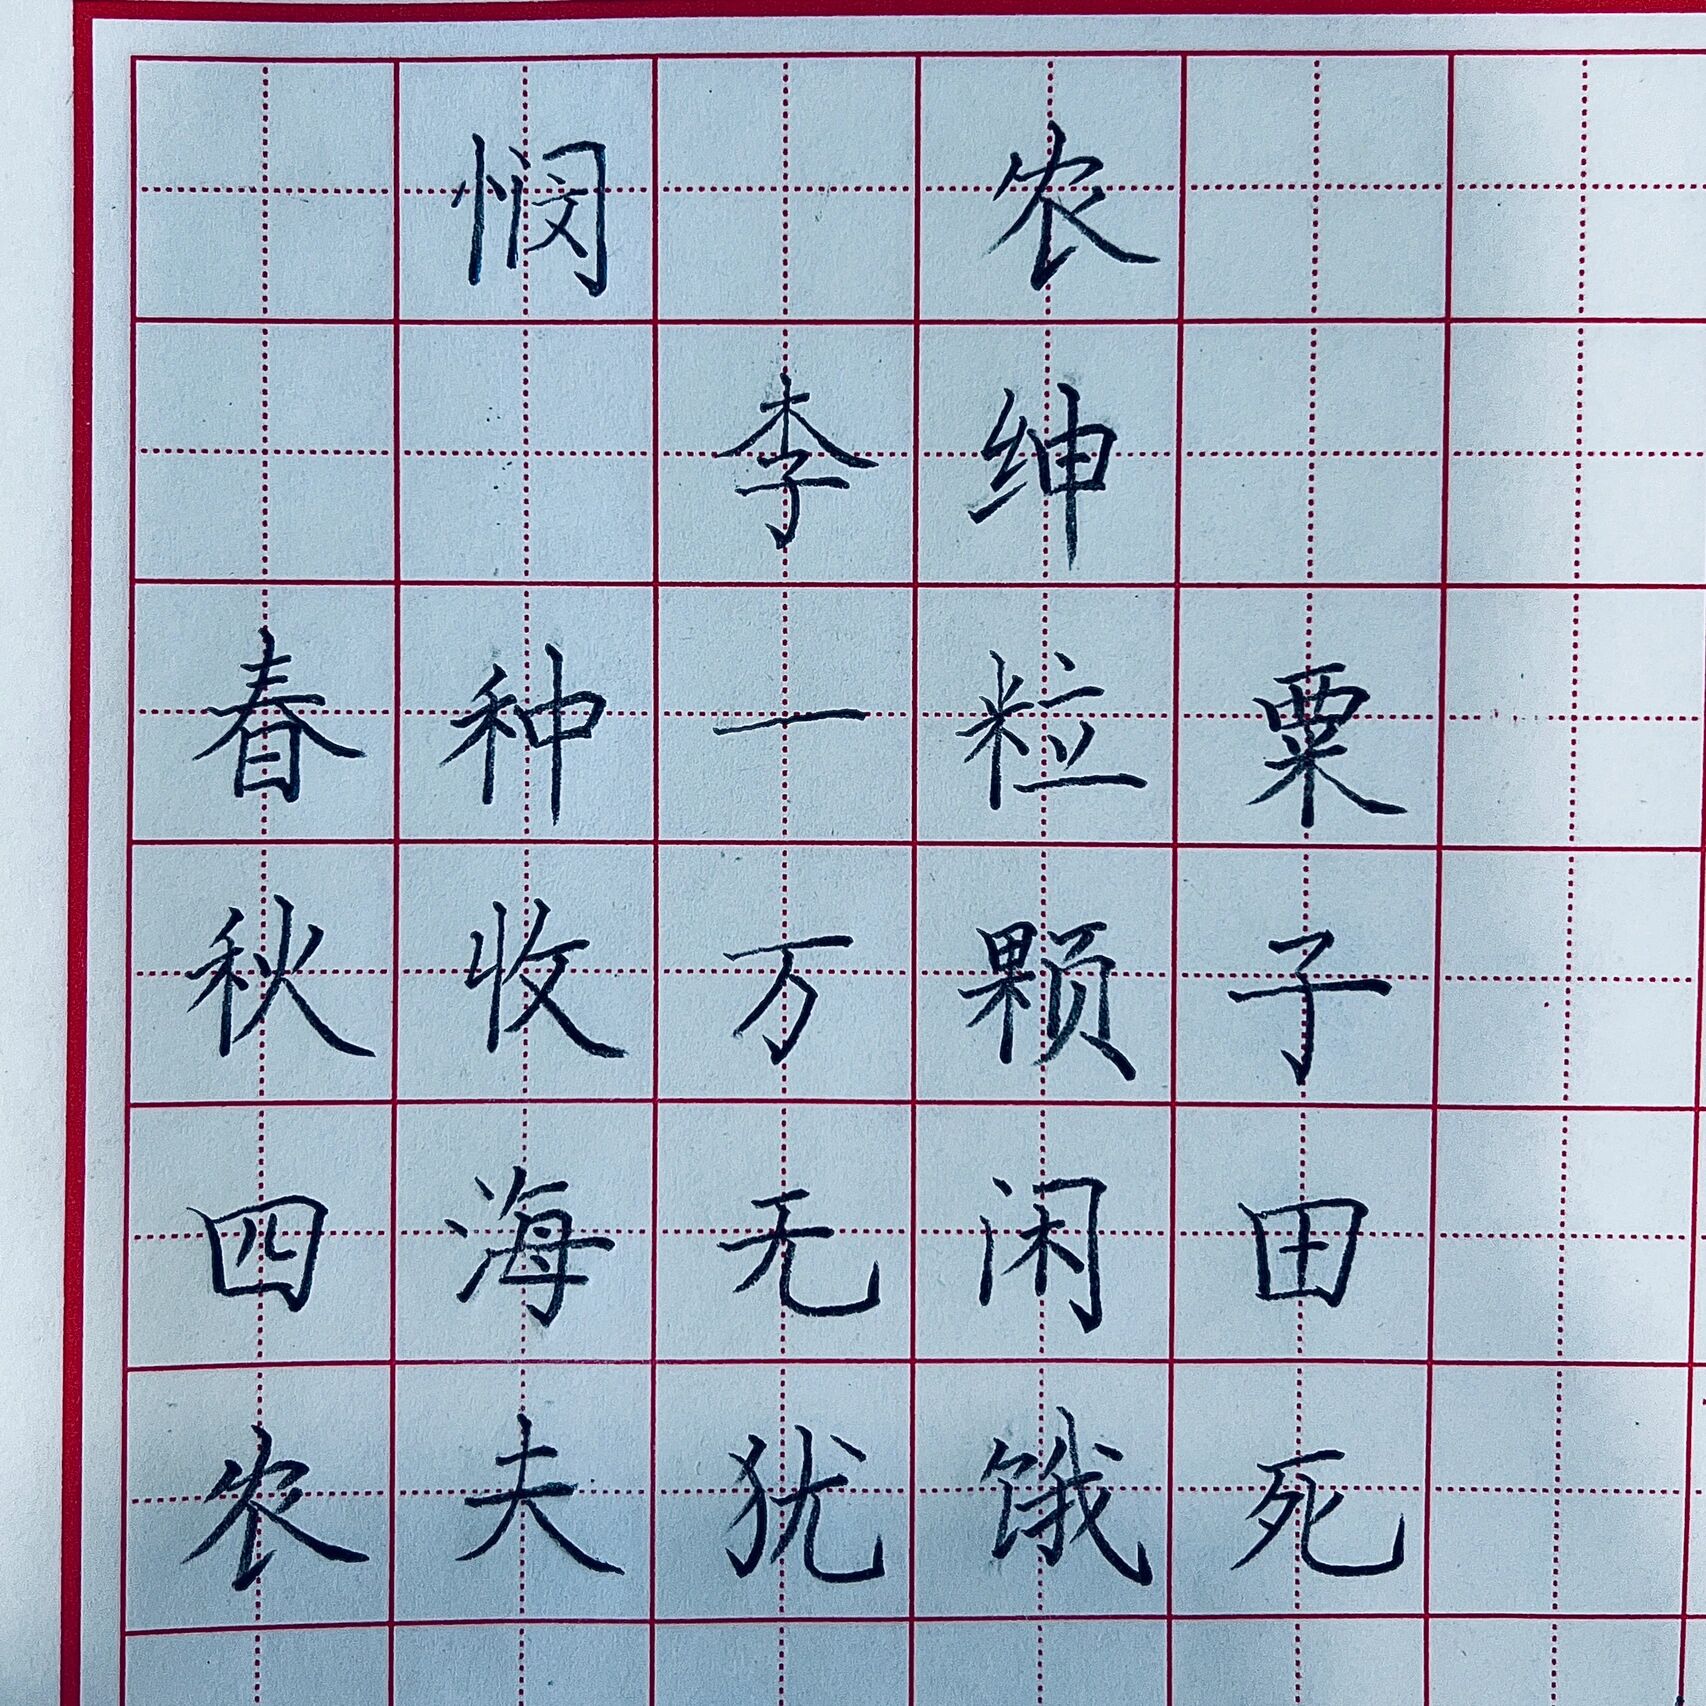 悯农
李绅
春种一粒粟
秋收万颗子
四海无闲田
农夫犹饿死